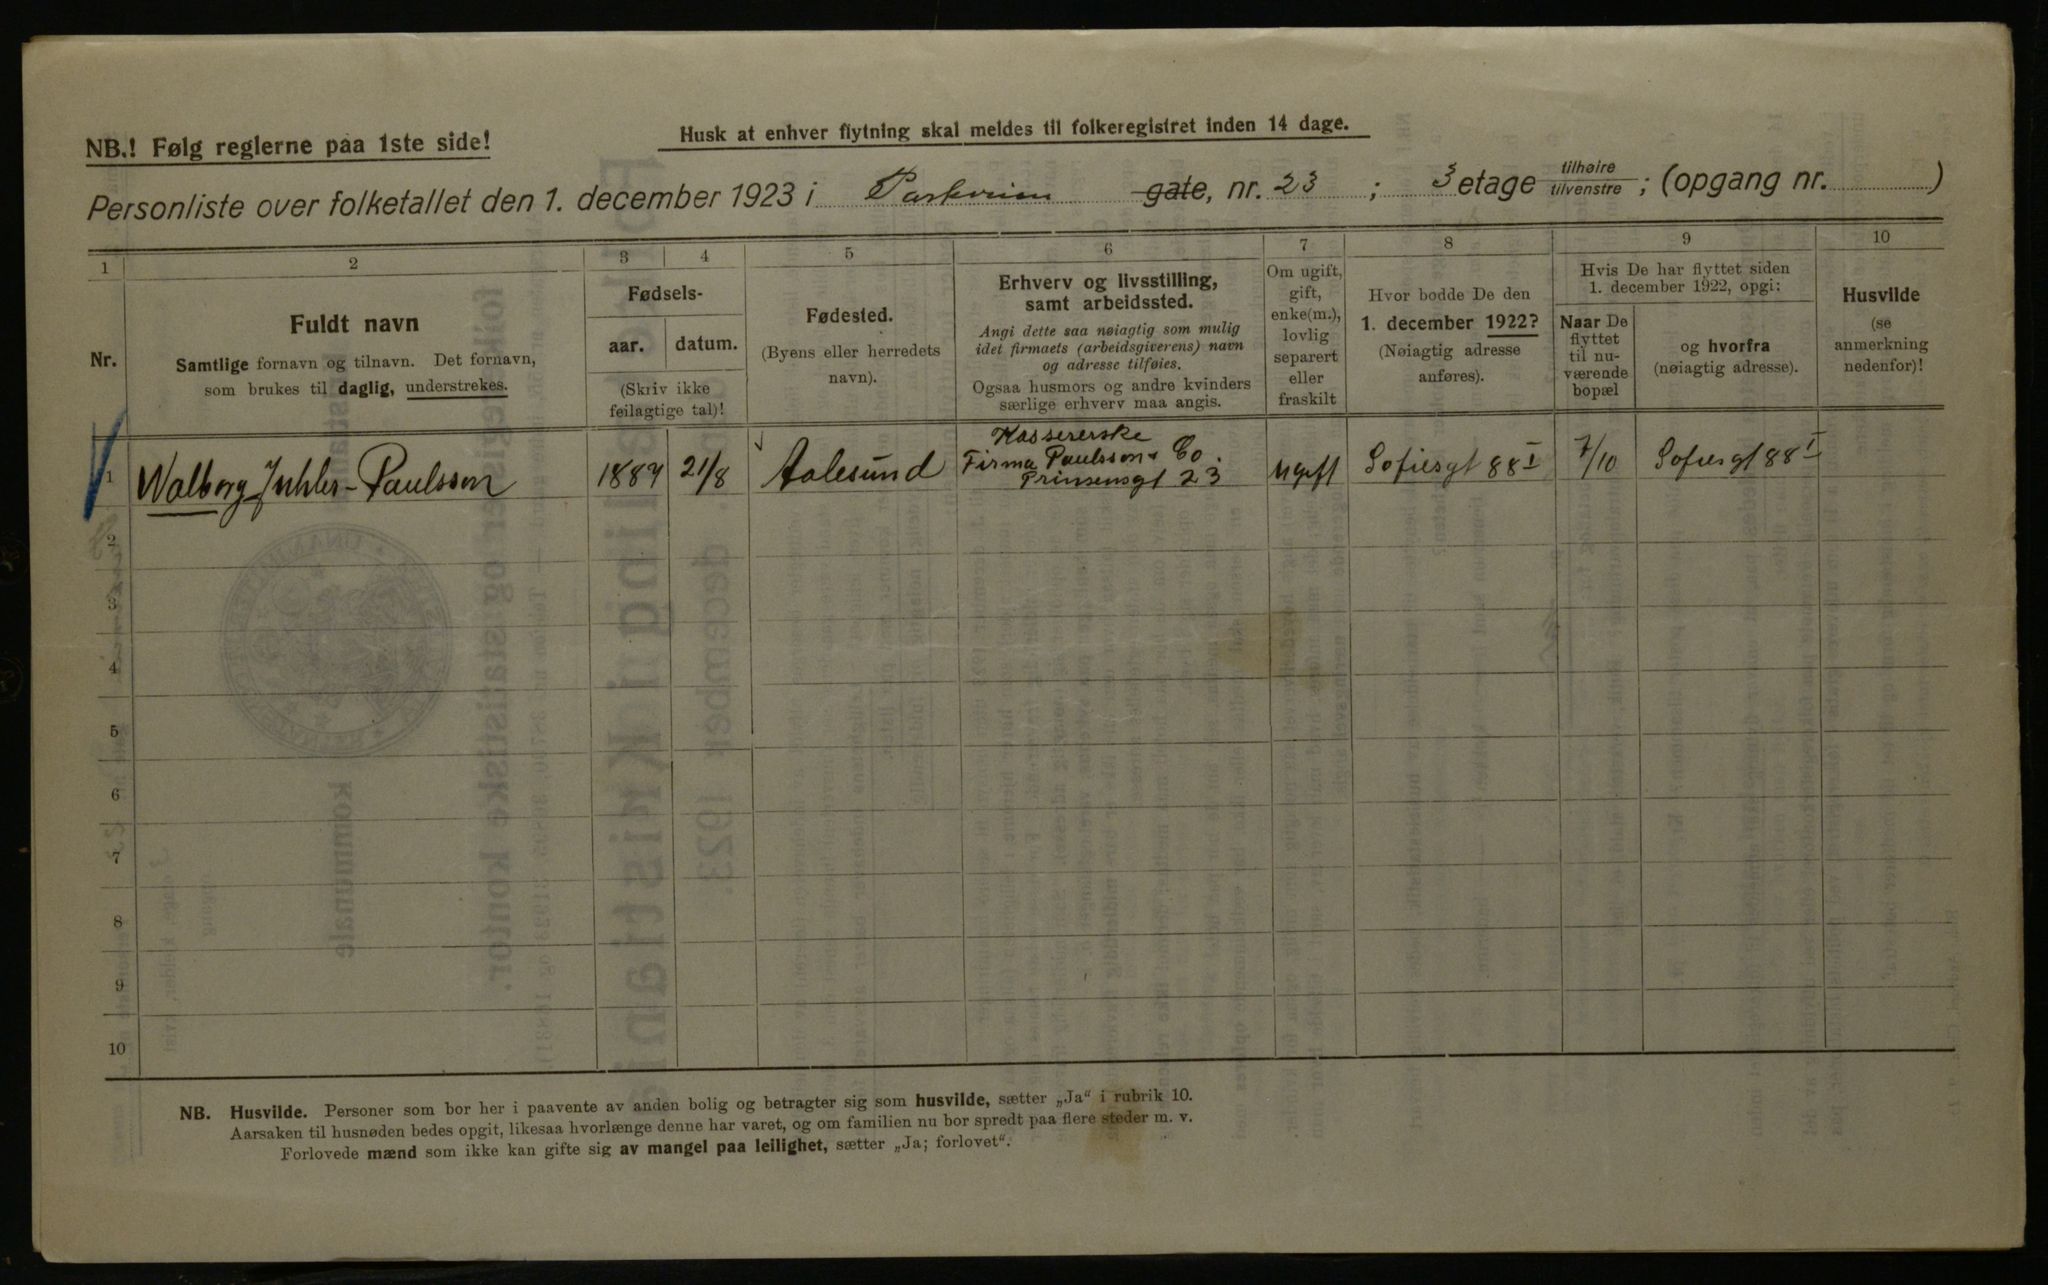 NB.! Følg reglerne paa 1ste side!
Husk at enhver flytning skal meldes til folkeregistret inden 14 dage.
Personliste over folketallet den 1. december 1923 i Parkveien gate, nr. 23 ; 3 etage tilhøire tilvenstre ; (opgang nr. )
1 2 3 4 5 6 7 8 9 10
Nr.
Fuldt navn
Samtlige fornavn og tilnavn. Det fornavn,
som brukes til daglig, understrekes.
Fødsels-
aar. datum.
(Skriv ikke
feilagtige tal)!
Fødested.
(Byens eller herredets
navn).
Erhverv og livsstilling,
samt arbeidssted.
Angi dette saa nøiagtig som mulig
idet firmaets (arbeidsgiverens) navn
og adresse tilføies.
Ogsaa husmors og andre kvinders
særlige erhverv maa angis.
Om ugift,
gift,
enke(m.),
lovlig
separert
eller
fraskilt
Hvor bodde De den
1. december 1922?
(Nøiagtig adresse
anføres).
Hvis De har flyttet siden
1. december 1922, opgi:
Naar De
flyttet
til nu-
værende
bopæl
og hvorfra
(nøiagtig adresse).
Husvilde
(se
anmerkning
nedenfor)!
1 Walborg Juhler-Paulsson 1887 21/8 Aalesund
Kassererske
Firma Paulsson & Co.
Prinsensgt 23
ugift Sofiesgt 88 I 7/10 Sofiesgt 88 I
2
3
4
5
6
7
8
9
10
NB. Husvilde. Personer som bor her i paavente av anden bolig og betragter sig som husvilde, sætter „Ja“ i rubrik 10.
Aarsaken til husnøden bedes opgit, likesaa hvorlænge denne har varet, og om familien nu bor spredt paa flere steder m. v.
Forlovede mænd som ikke kan gifte sig av mangel paa leilighet, sætter „Ja; forlovet“.